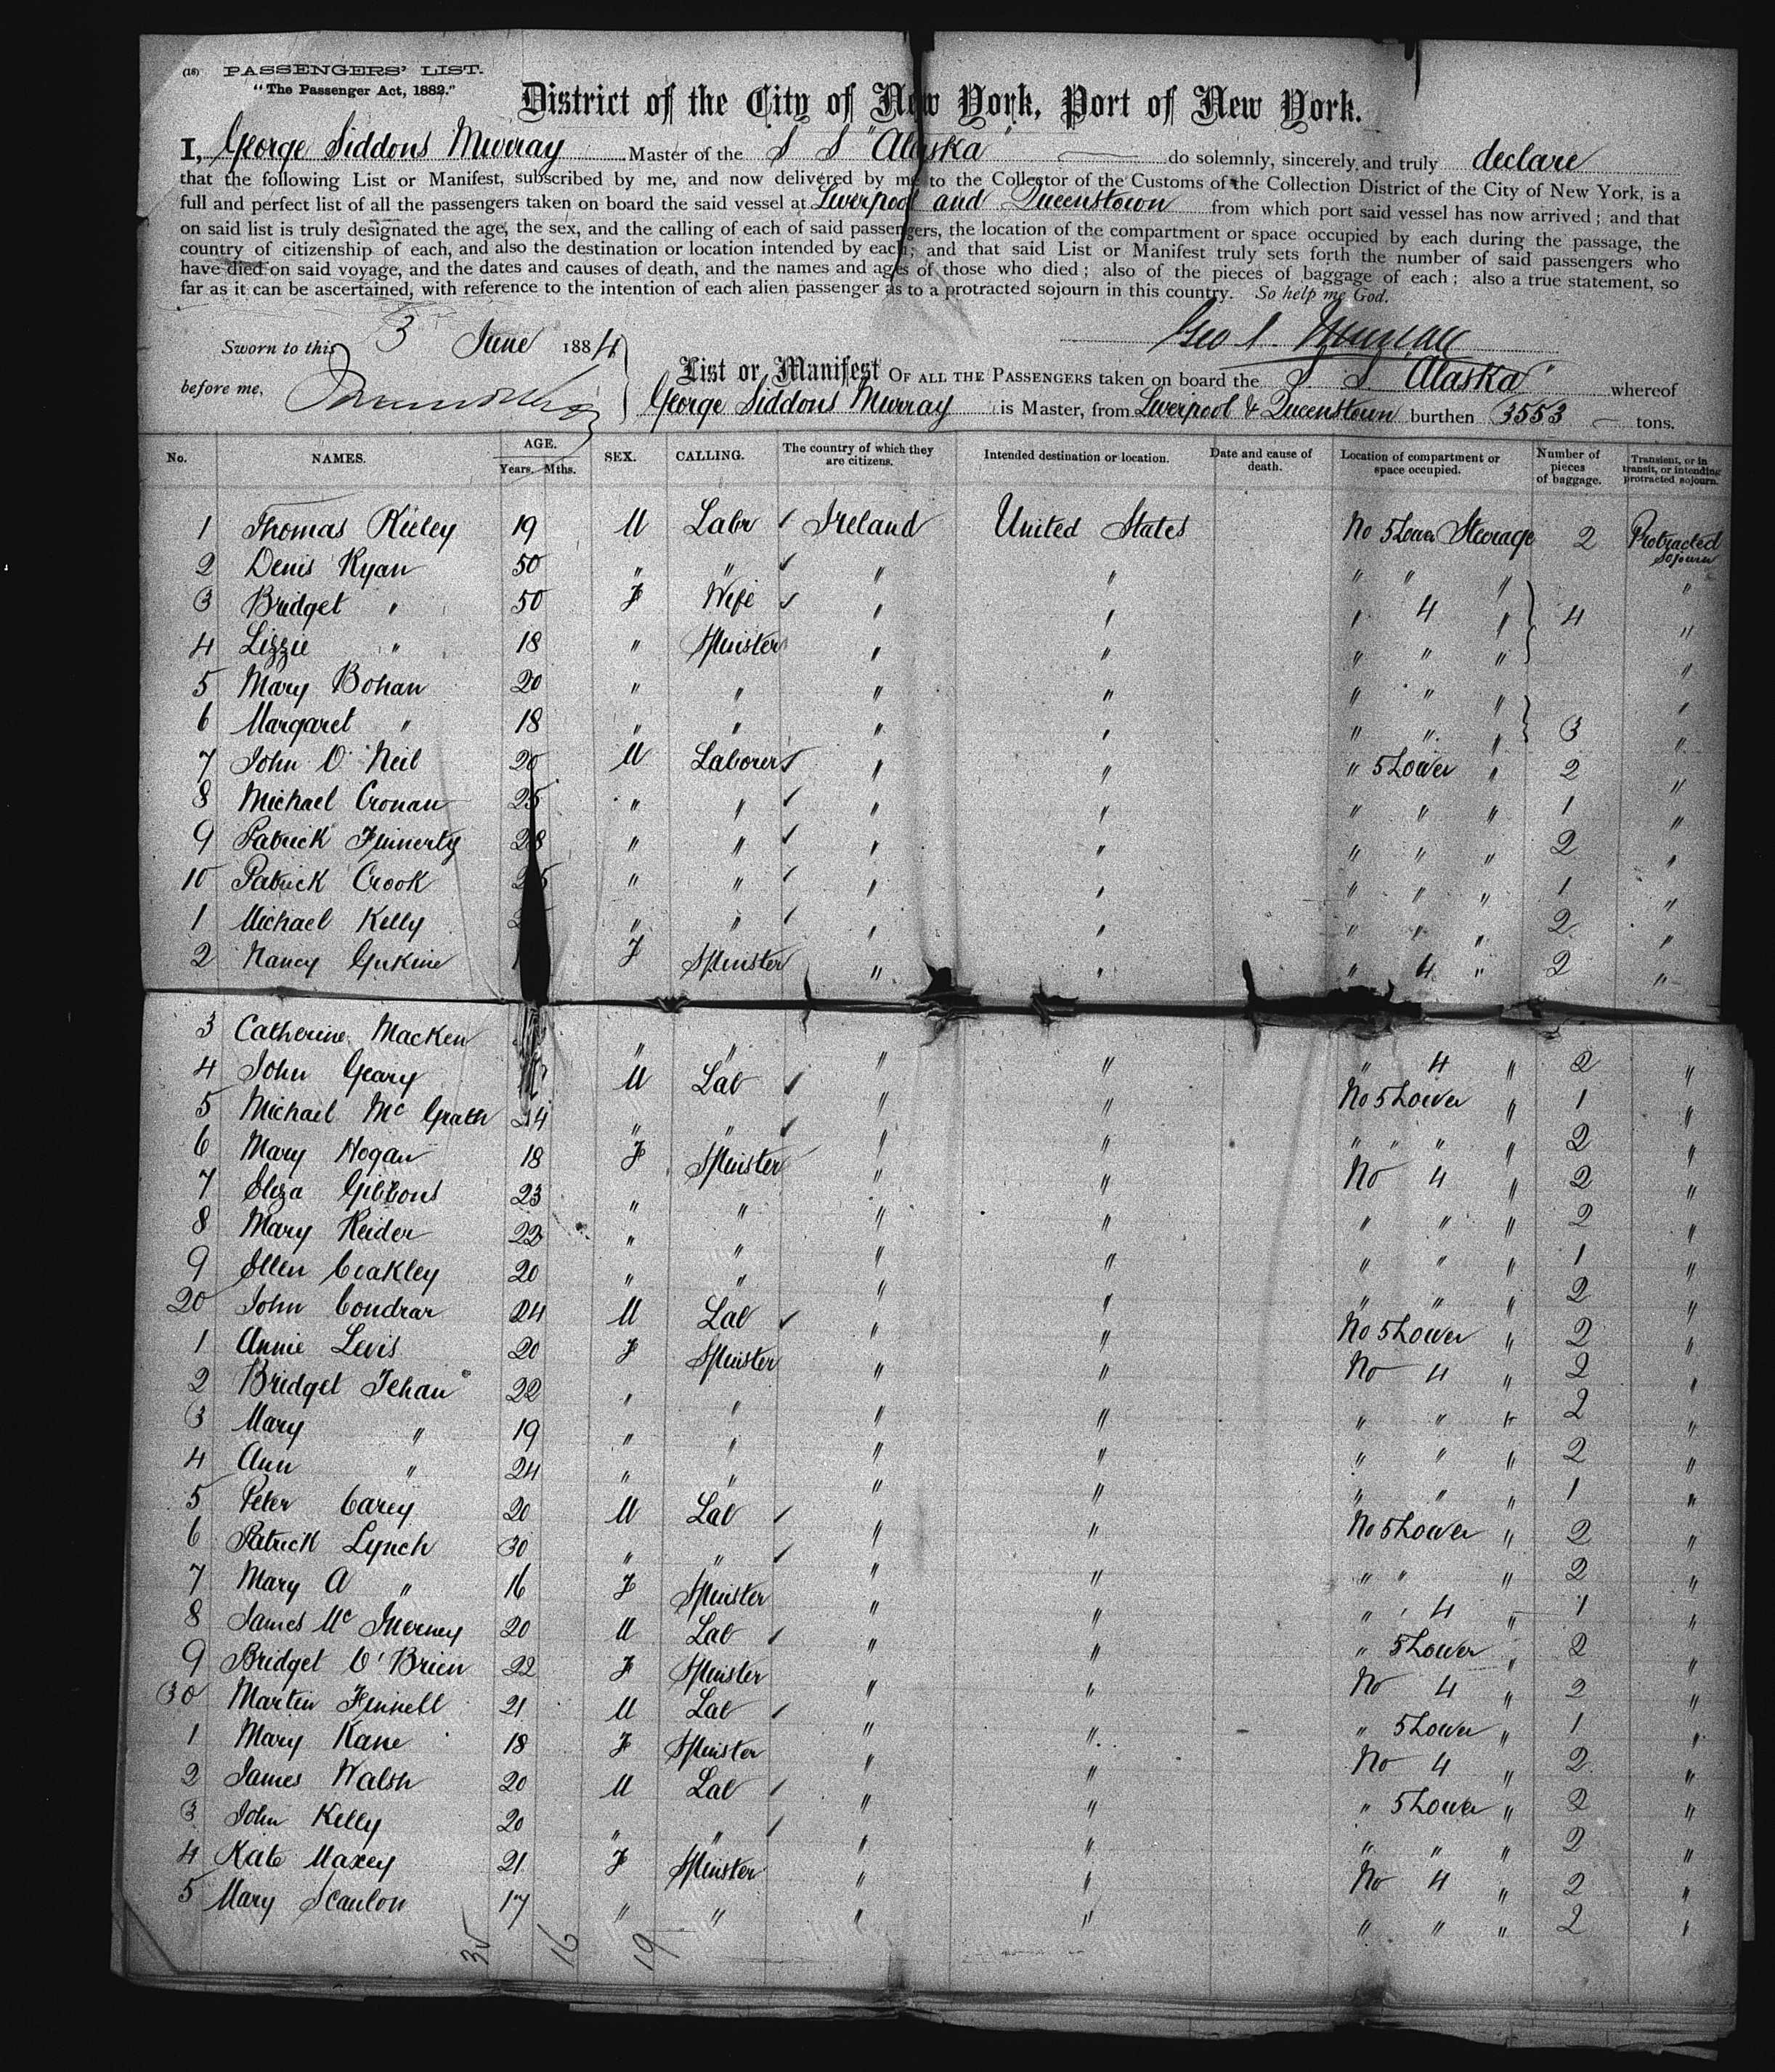 (16) PASSENGERS' LIST.
"The Passenger Act, 1882."
District of the City of New York, Port of New York.
I, George Siddons Murray Master of the S S "Alaska" do solemnly, sincerely and truly declare
that the following List or Manifest, subscribed by me, and now delivered by me to the Collector of the Customs of the Collection District of the City of New York, is a
full and perfect list of all the passengers taken on board the said vessel at Liverpool and Queenstown from which port said vessel has now arrived; and that
on said list is truly designated the age, the sex, and the calling of each of said passengers, the location of the compartment or space occupied by each during the passage, the
country of citizenship of each, and also the destination or location intended by each; and that said List or Manifest truly sets forth the number of said passengers who
have died on said voyage, and the dates and causes of death, and the names and ages of those who died; also of the pieces of baggage of each; also a true statement, so
far as it can be ascertained, with reference to the intention of each alien passenger as to a protracted sojourn in this country. So help me God.
Geo S. Murray
Sworn to this 3 June 1884
before me,
List or Manifest OF ALL THE PASSENGERS taken on board the S S Alaska" whereof
George Siddons Murray is Master, from Liverpool & Queenstown burthen 3553 tons.
No. NAMES. AGE. Years. Mths. SEX. CALLING. The country of which they are citizens. Intended destination or location. Date and cause of death. Location of compartment or space occupied. Number of pieces of baggage. Transient, or in transit, or intending protracted sojourn.
1 Thomas Kieley 19 M Labr ✓ Ireland United States No 5 Lower Steerage 2 Protracted Sojourn
2 Denis Ryan 50 " " ✓ " " " " " "
3 Bridget " 50 F Wife ✓ " " " 4 " 4 "
4 Lizzie " 18 " Spinster " " " " " "
5 Mary Bohan 20 " " " " " " " "
6 Margaret " 18 " " " " " " " 3 "
7 John O'Neil 20 M Laborer ✓ " " " 5 Lower " 2 "
8 Michael Cronan 25 " " ✓ " " " " " 1 "
9 Patrick Finnerty 28 " " ✓ " " " " " 2 "
10 Patrick Crook " " ✓ " " " " " 1 "
1 Michael Kelly " " ✓ " " " " " 2 "
2 Nancy F Spinster " " " 4 " 2 "
3 Catherine Macken " " " " " 4 " 2 "
4 John Geary M Lab ✓ " " No 5 Lower " 1 "
5 Michael Mc Grath 24 " " ✓ " " " " " " 2 "
6 Mary Hogan 18 F Spinster " " No 4 " 2 "
7 Eliza Gibbons 23 " " " " " " " 2 "
8 Mary Reider 22 " " " " " " " 1 "
9 Ellen Coakley 20 " " " " " " " 2 "
20 John Condrar 24 M Lab ✓ " " No 5 Lower " 2 "
1 Annie Levis 20 F Spinster " " No 4 " 2 "
2 Bridget Tehan 22 " " " " " " " 2 "
3 Mary " 19 " " " " " " " 2 "
4 Ann " 24 " " " " " " " 1 "
5 Peter Carey 20 M Lab ✓ " " No 5 Lower " 2 "
6 Patrick Lynch 30 " " ✓ " " " " " 2 "
7 Mary A " 16 F Spinster " " " " 4 " 1 "
8 James Mc Inerney 20 M Lab ✓ " " " 5 Lower " 2 "
9 Bridget O'Brien 22 F Spinster " " No 4 " 2 "
30 Martin Finnell 21 M Lab ✓ " " " 5 Lower " 1 "
1 Mary Kane 18 F Spinster " " No 4 " 2 "
2 James Walsh 20 M Lab ✓ " " " 5 Lower " 2 "
3 John Kelly 20 " " ✓ " " " " " 2 "
4 Kate Maxey 21 F Spinster " " No 4 " 2 "
5 Mary Scanlon 17 " " " " " " " 2 "
35 16 19